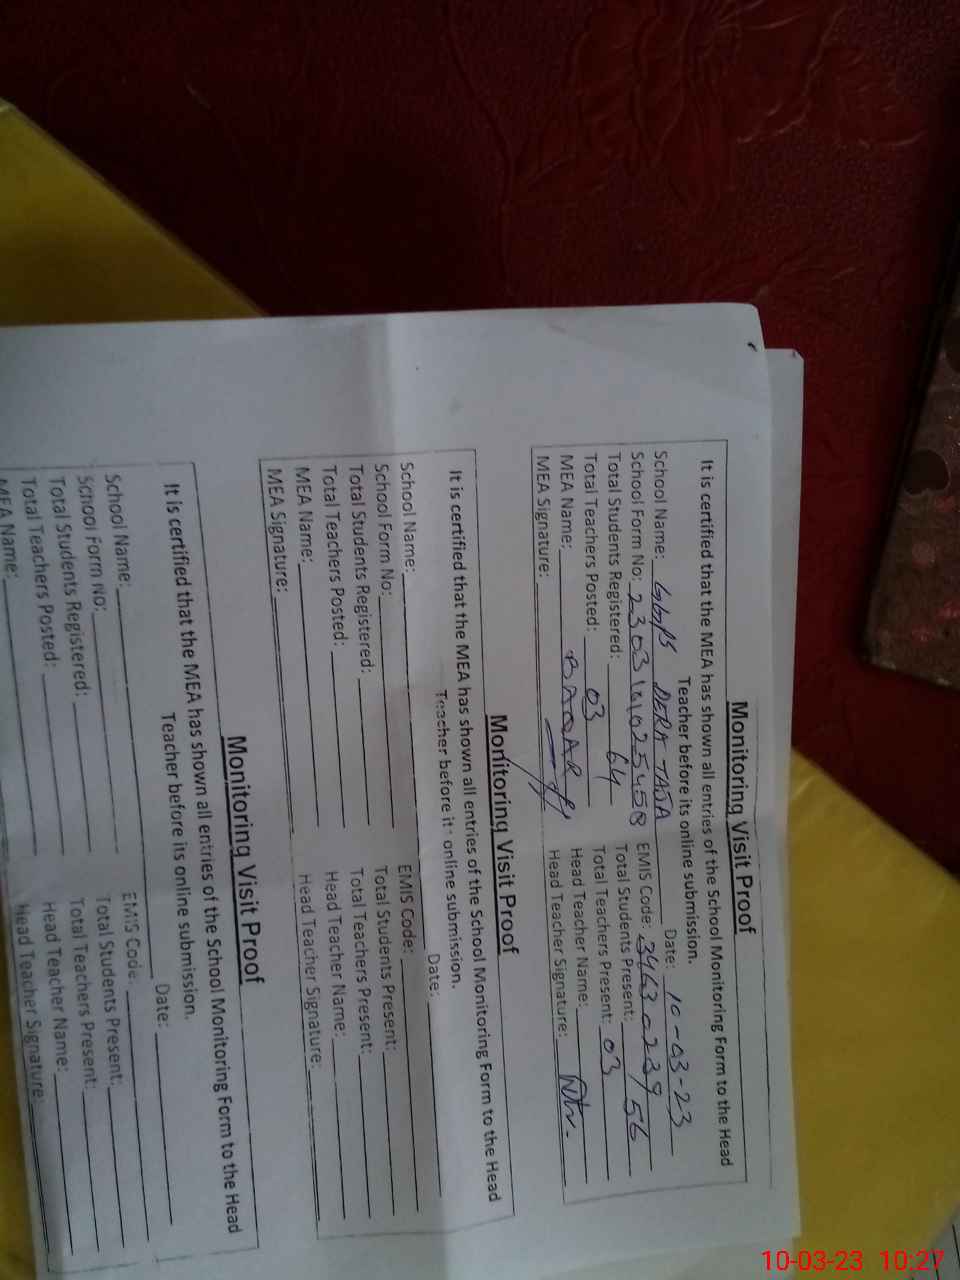 Monitoring Visit Proof
It is certified that the MEA has shown all entries of the School Monitoring Form to the Head
Teacher before its online submission.
School Name: GGPS DERA TAJA Date: 10-03-23
School Form No: 2303101025458 EMIS Code: 34630239
Total Students Registered: 64 Total Students Present: 56
Total Teachers Posted: 03 Total Teachers Present: 03
MEA Name: BAQAR Head Teacher Name:
MEA Signature: Head Teacher Signature:
Monitoring Visit Proof
It is certified that the MEA has shown all entries of the School Monitoring Form to the Head
Teacher before its online submission.
School Name: Date:
School Form No: EMIS Code:
Total Students Registered: Total Students Present:
Total Teachers Posted: Total Teachers Present:
MEA Name: Head Teacher Name:
MEA Signature: Head Teacher Signature:
Monitoring Visit Proof
It is certified that the MEA has shown all entries of the School Monitoring Form to the Head
Teacher before its online submission.
School Name: Date:
School Form No: EMIS Code:
Total Students Registered: Total Students Present:
Total Teachers Posted: Total Teachers Present:
MEA Name: Head Teacher Name:
Head Teacher Signature:
10-03-23 10:27